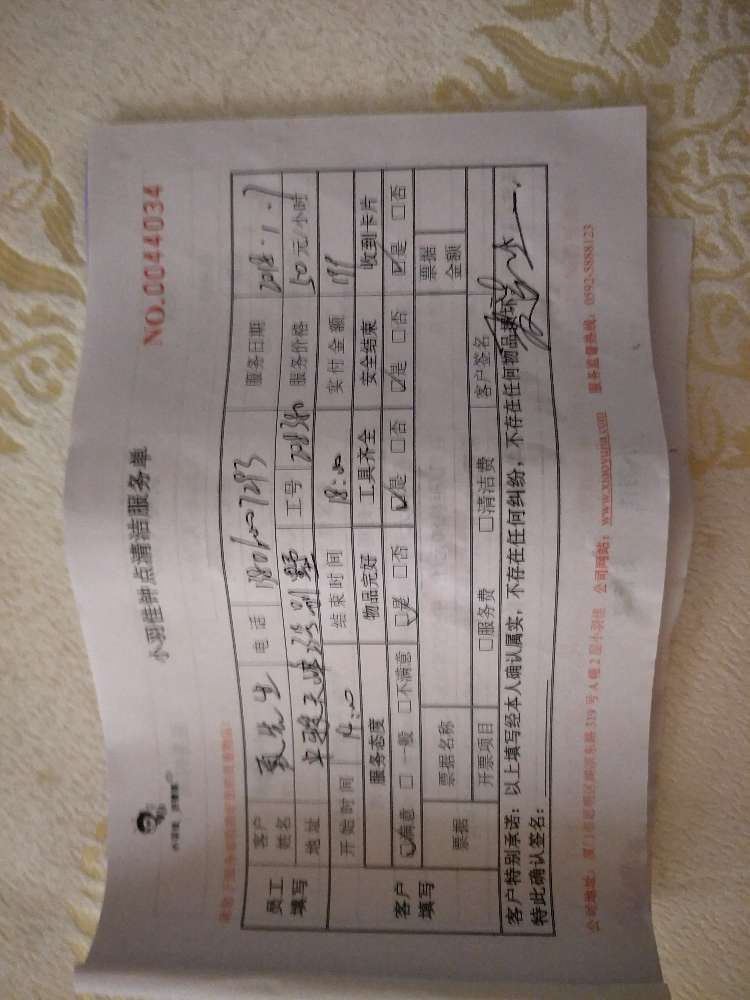 小羽佳钟点清洁服务单
NO.0044034
员工填写 客户姓名 先生 电话 服务日期 2018.1.7
地址 工号 服务价格 50元/小时
开始时间 14:00 结束时间 18:00 实付金额
客户填写 服务态度 物品完好 工具齐全 安全结束 收到卡片
☑满意 □一般 □不满意 ☑是 □否 ☑是 □否 ☑是 □否 ☑是 □否
票据 票据名称 票据金额
开票项目 □服务费 □清洁费 客户签名
客户特别承诺：以上填写经本人确认属实，不存在任何纠纷，不存在任何物品损坏
特此确认签名：
公司地址：厦门市思明区湖滨东路319号A幢2层小羽佳 公司网站：www.xiaoyujia.com 服务监督热线：0592-5888123